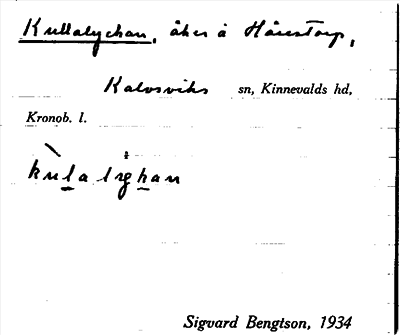 Kullalychan, åker å Hårestorp,
Kalvsviks sn, Kinnevalds hd,
Kronob. l.
Sigvard Bengtson, 1934